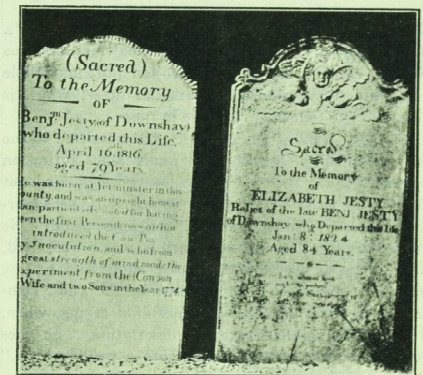 (Sacred)
To the Memory
OF
Benjn Jesty (of Downshay)
who departed this Life,
April 16, 1816
aged 79 Years
was born at Yetminster in this
ounty, and was an upright honest
an: particularly noted for having
een the first Person known that
introduced the Cow Pox
y Inoculation, and who from
great strength of mind made the
xperiment from the (Cow) on
Wife and two Sons in the Year 1774
Sacred
To the Memory
of
ELIZABETH JESTY
Relict of the late BENJ. JESTY
of Downshay who Departed this life
Jan: 8: 1824
Aged 84 Years.